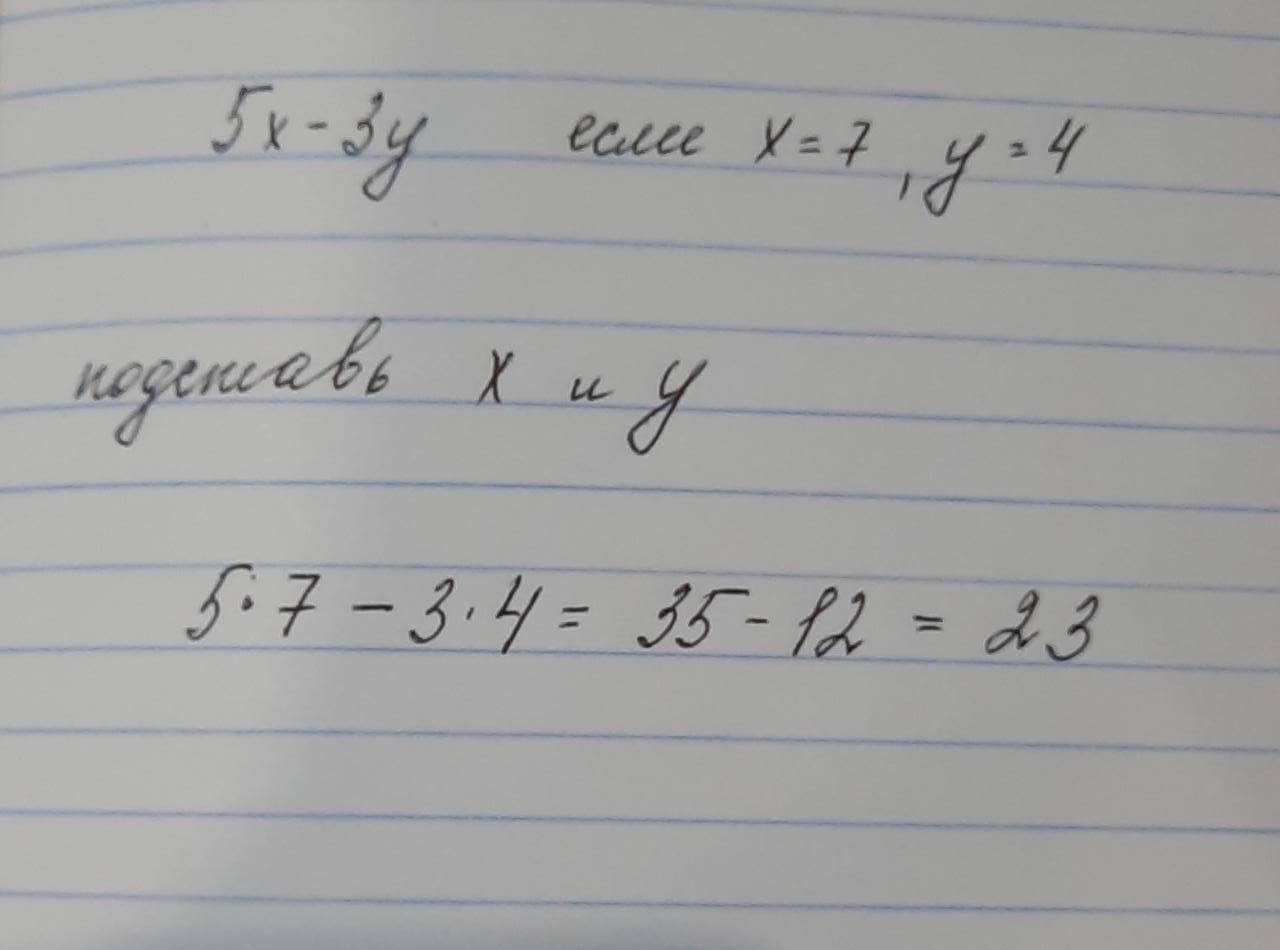 5x - 3y если x = 7, y = 4
подставь x и y
5·7 - 3·4 = 35 - 12 = 23